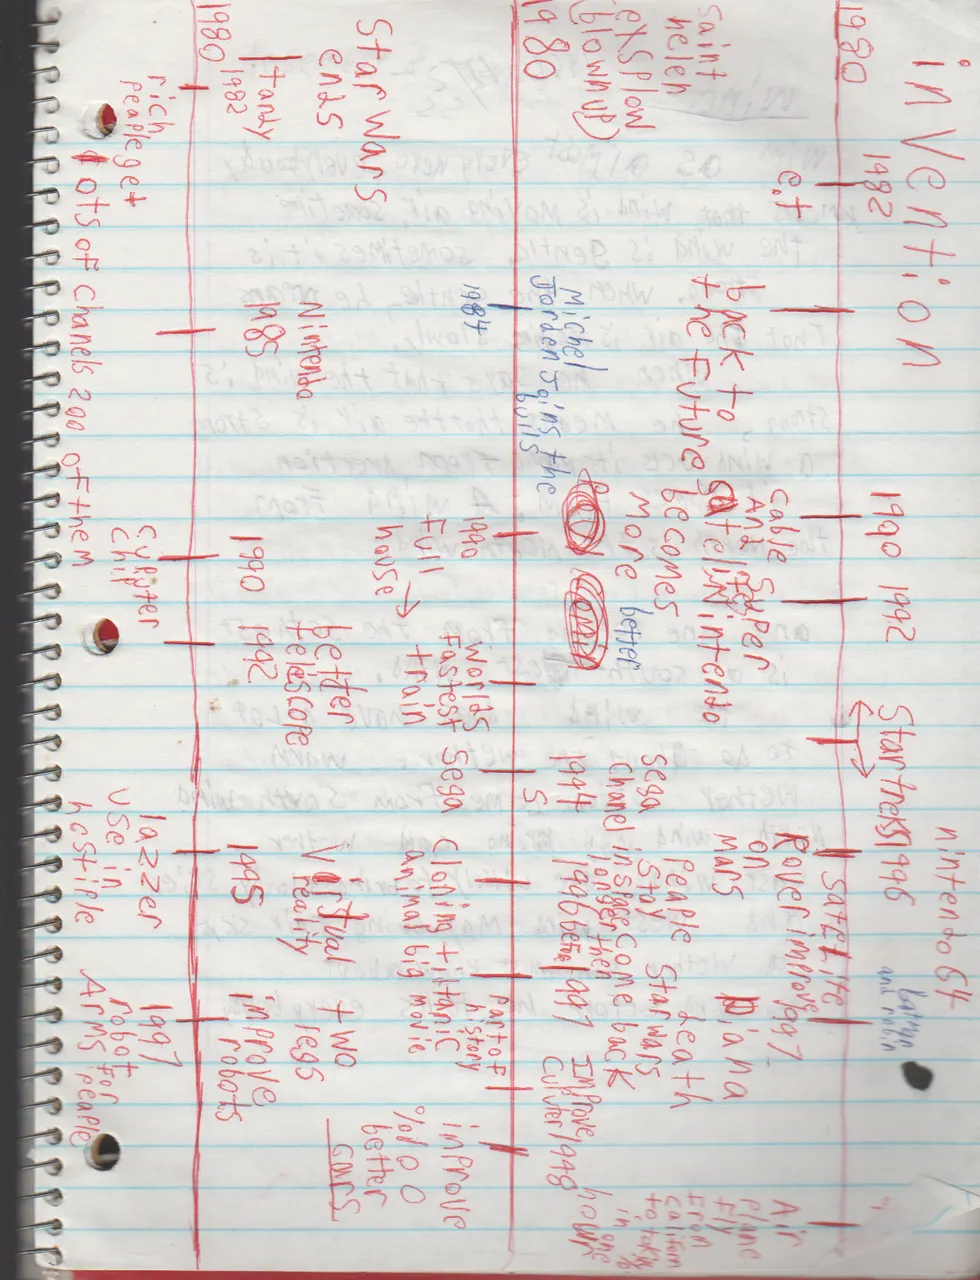 invention
1980
1982
1990
1992
Startreks
1996
nintendo 64
batman
and robin
e.t
back to
the Future
Cable
And
Satelite
Super
Nintendo
Satelite
Rover improve
on
mars
1997
Saint
helen
exsplow
(blown up)
becomes
more
better
Sega
chanel
People
Stay
in space
longer then
Star wars
Come
back
death
piana
Air
plane
Fly
From
Californ
to tokyo
in
one
hour
1980
Michel
Jorden Joins the
bulls
1994
1996
1997
Improve
1998
1984
1990
Full
house
worlds
Fastest
train
Sega
S
Cloning
animal
titanic
big
movie
part of
history
improve
%100
better
cars
Star wars
ends
1980
1982
tandy
Nintendo
1985
1990
1992
better
telescope
1995
Virtual
reality
two
legs
improve
robots
rich
peaple get
lots of chanels 200 of them
chip
lazzer
use in
hostiple
1997
robot
Arms
for
peaple